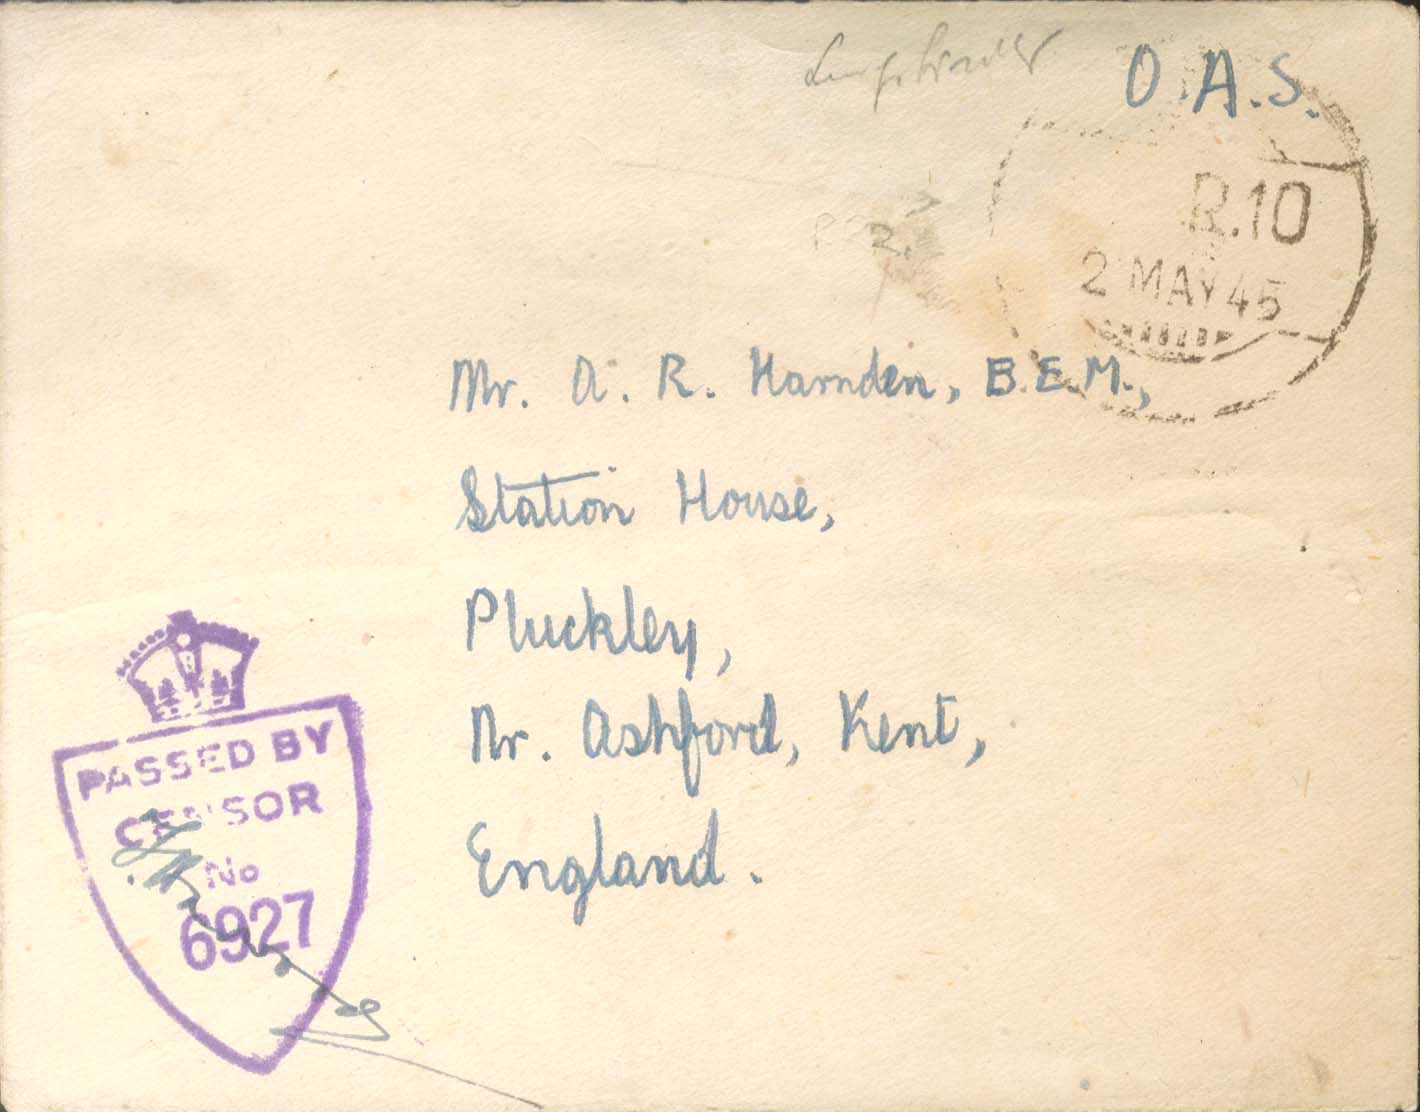 O.A.S.
R.10
2 MAY 45
Mr. A. R. Harnden, B.E.M.,
Station House,
Pluckley,
Nr. Ashford, Kent,
England.
PASSED BY
CENSOR
No
6927